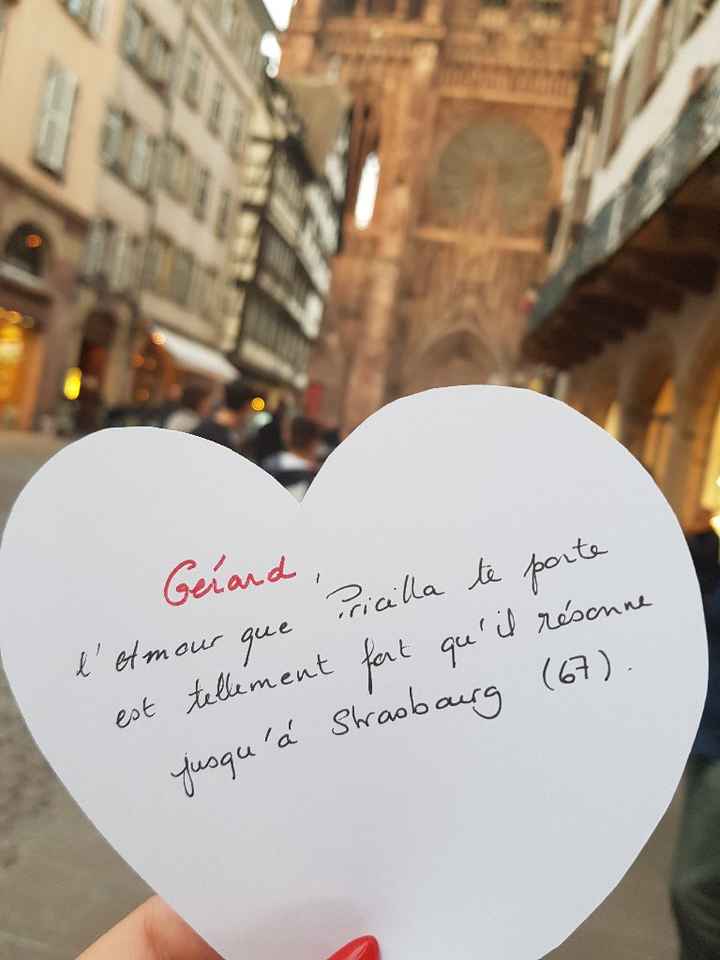 Gérard,
l'Amour que Pricilla te porte
est tellement fort qu'il résonne
jusqu'à Strasbourg (67).